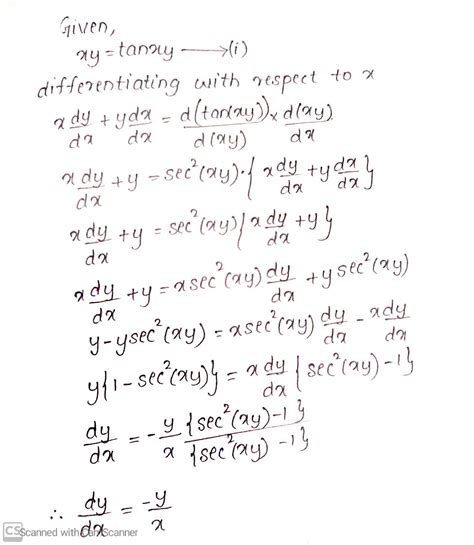 Given,
xy = tanxy ⟶ (i)
differentiating with respect to x
x dy/dx + y dx/dx = d(tan(xy))/d(xy) × d(xy)/dx
x dy/dx + y = sec²(xy)·{ x dy/dx + y dx/dx }
x dy/dx + y = sec²(xy){ x dy/dx + y }
x dy/dx + y = x sec²(xy) dy/dx + y sec²(xy)
y - y sec²(xy) = x sec²(xy) dy/dx - x dy/dx
y{1 - sec²(xy)} = x dy/dx { sec²(xy) - 1 }
dy/dx = - y/x {sec²(xy) - 1}/{sec²(xy) - 1}
∴ dy/dx = -y/x
CS Scanned with CamScanner